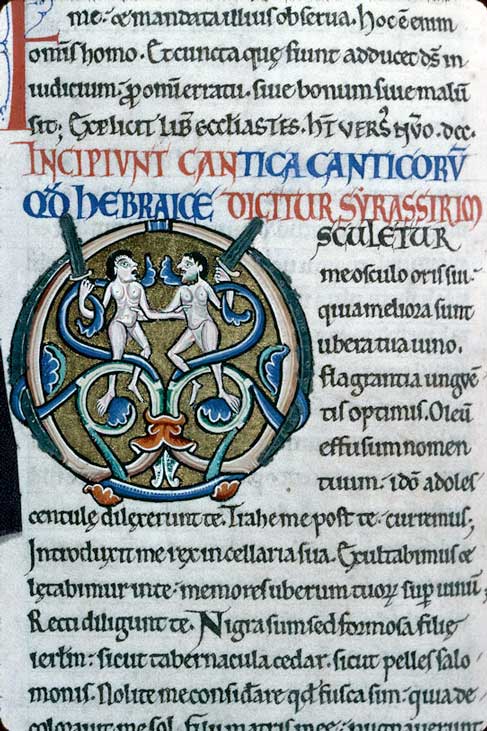 me · & mandata illius observa. Hoc ē enim
omnis homo. Et cuncta quę fiunt adducet d̄s in
iudicium · ꝓ omni erratu. sive bonum sive malū
sit; Explicit lib̄ ecclīastes. h̄t vers̄ nv̄o. dccc.
INCIPIVNT CANTICA CANTICORV̄
QD̄ hEBRAICE DICITUR SYRASSIRIM
OSCULETUR
me osculo oris sui ·
quia meliora sunt
ubera tua uino.
flagrantia unguē
tis optimis. Oleū
effusum nomen
tuum · ido adoles
centulę dilexerunt te. Trahe me post te · curremus;
Introduxit me rex in cellaria sua. Exultabimus &
lętabimur in te · memores uberum tuoꝝ sup̄ uinū;
Recti diligunt te. Nigra sum sed formosa filię
ierlm̄ · sicut tabernacula cedar. sicut pelles salo
monis. Nolite me considerare qd̄ fusca sim · quia de
colorauit me sol. filii matris meę · pugnauerunt